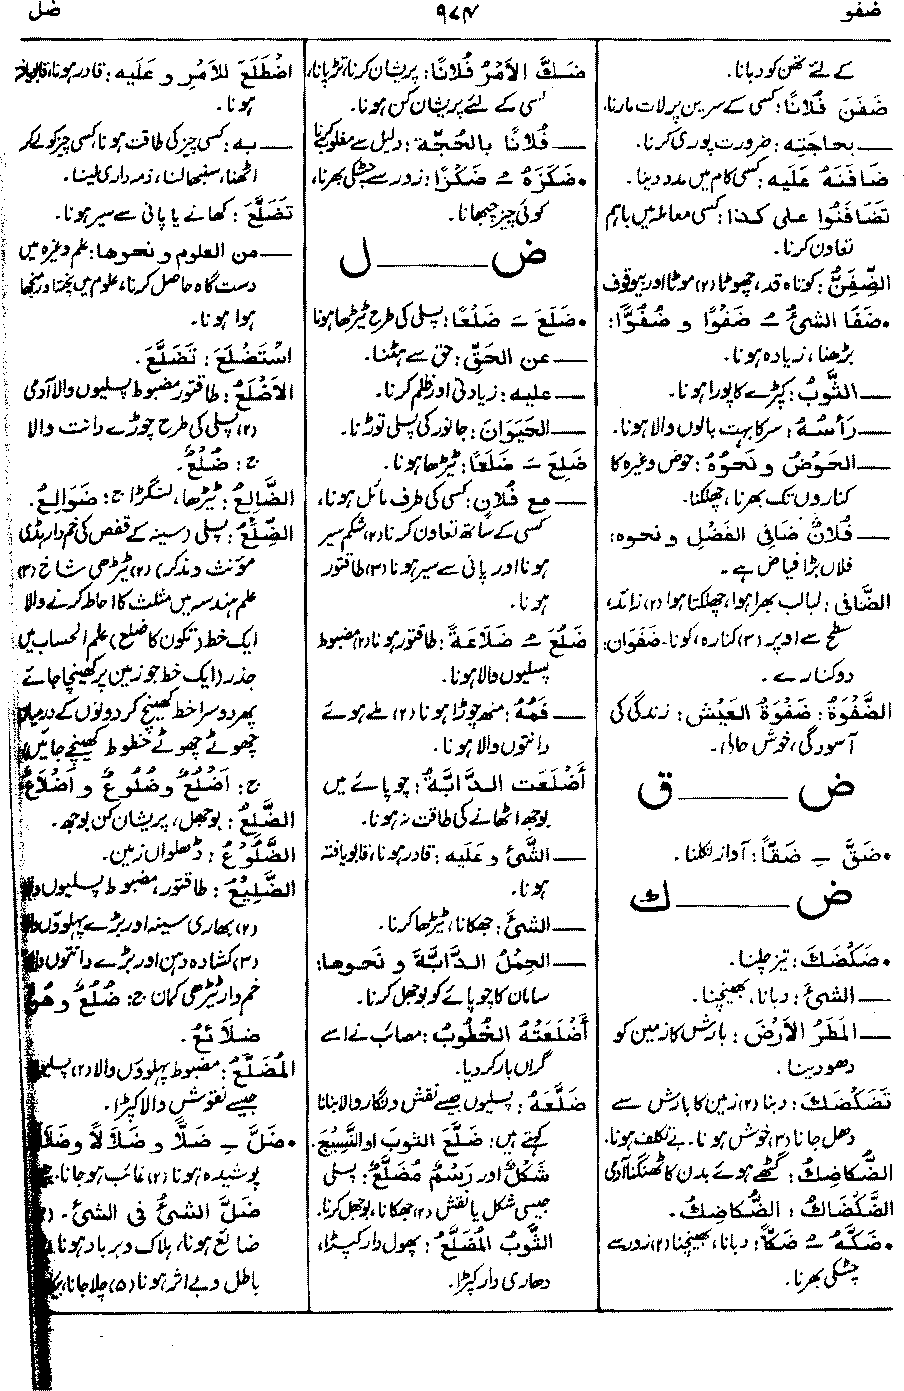 ضفو
۹۷۴
ضل
کے لئے تھن کو دبانا۔
ضَفَنَ فُلَانًا: کسی کے سرین پر لات مارنا،
ــــ بحاجتِه: ضرورت پوری کرنا۔
ضَافَنَهُ عَلَيه: کسی کام میں مدد دینا۔
تَضَافَنُوا على كذا: کسی معاملہ میں باہم
تعاون کرنا۔
الضِّفَنُّ: کوتاہ قد، چھوٹا (۲) موٹا اور بیوقوف
• ضَفَا الشئُ ـُ ضَفْوًا و ضُفُوًّا:
بڑھنا، زیادہ ہونا۔
ــــ الثَّوبُ: کپڑے کا پورا ہونا۔
ــــ رَأسُهُ: سر کا بہت بالوں والا ہونا۔
ــــ الحَوضُ و نَحوُهُ: حوض وغیرہ کا
کناروں تک بھرنا، چھلکنا۔
ــــ فُلانٌ ضَافِى الفَضْلِ و نحوِه:
فلاں بڑا فیاض ہے۔
الضَّافِى: لبالب بھرا ہوا، چھلکتا ہوا (۲) زائد،
سطح سے اوپر (۳) کنارہ، کونا۔ ضَفَوَان:
دو کنارے۔
الضَّفْوَةُ: ضَفْوَةُ العَيْش: زندگی کی
آسودگی، خوش حالی۔
ض ــــ ق
• ضَقَّ ـِ ضَقًّا: آواز نکلنا۔
ض ــــ ك
• ضَكْضَكَ: تیز چلنا۔
ــــ الشئَ: دبانا، بھینچنا۔
ــــ المَطَرُ الأرْضَ: بارش کا زمین کو
دھو دینا۔
تَضَكْضَكَ: دبنا (۲) زمین کا بارش سے
دھل جانا (۳) خوش ہونا۔ بے تکلف ہونا۔
الضُّكَاضِكُ: گٹھے ہوئے بدن کا ٹھنگنا آدمی
الضَّكْضَاكُ: الضُّكَاضِكُ۔
• ضَكَّهُ ـُ ضَكًّا: دبانا، بھینچنا (۲) زور سے
چٹکی بھرنا۔
ضَكَّ الأمْرُ فُلَانًا: پریشان کرنا، تڑپانا،
کسی کے لئے پریشان کن ہونا۔
ــــ فُلانًا بالحُجَّة: دلیل سے مغلوب کرنا
• ضَكَزَهُ ـُ ضَكْزًا: زور سے چٹکی بھرنا،
کوئی چیز چبھانا۔
ض ــــ ل
• ضَلَعَ ـَ ضَلْعًا: پسلی کی طرح ٹیڑھا ہونا
ــــ عن الحَقِّ: حق سے ہٹنا۔
ــــ عليه: زیادتی اور ظلم کرنا۔
ــــ الحَيَوَانَ: جانور کی پسلی توڑنا۔
ضَلِعَ ـَ ضَلَعًا: ٹیڑھا ہونا۔
ــــ مع فُلَان: کسی کی طرف مائل ہونا،
کسی کے ساتھ تعاون کرنا (۲) شکم سیر
ہونا اور پانی سے سیر ہونا (۳) طاقتور
ہونا۔
ضَلُعَ ـُ ضَلَاعَةً: طاقتور ہونا (۲) مضبوط
پسلیوں والا ہونا۔
ــــ فَمُهُ: منھ چوڑا ہونا (۲) ملے ہوئے
دانتوں والا ہونا۔
أَضْلَعَت الدَّابَّةُ: چوپائے میں
بوجھ اٹھانے کی طاقت نہ ہونا۔
ــــ الشَّئَ و عَليه: قادر ہونا، قابو یافتہ
ہونا۔
ــــ الشئَ: جھکانا، ٹیڑھا کرنا۔
ــــ الحِمْلُ الدَّابَّةَ و نَحوها:
سامان کا چوپائے کو بوجھل کرنا۔
أَضْلَعَتْهُ الخُطُوبُ: مصائب نے اسے
گراں بار کر دیا۔
ضَلَّعَهُ: پسلیوں جیسے نقش ونگار والا بنانا
کہتے ہیں: ضَلَّعَ الثوبَ او النَّسِيجَ۔
شَكْلٌ اور رَسْمٌ مُضَلَّعٌ: پسلی
جیسی شکل یا نقش (۲) جھکانا، بوجھل کرنا۔
الثَّوبُ المُضَلَّعُ: پھول دار کپڑا،
دھاری دار کپڑا۔
اضْطَلَعَ للأمْرِ و عَلَيه: قادر ہونا، قابو یافتہ
ہونا۔
ــــ به: کسی چیز کی طاقت ہونا، کسی چیز کو لے کر
اٹھنا، سنبھالنا، ذمہ داری لینا۔
تَضَلَّعَ: کھانے یا پانی سے سیر ہونا۔
ــــ من العلوم و نحوها: علم وغیرہ میں
دست گاہ حاصل کرنا، علوم میں پختہ ومنجھا
ہوا ہونا۔
اسْتَضْلَعَ: تَضَلَّعَ۔
الأَضْلَعُ: طاقتور مضبوط پسلیوں والا آدمی
(۲) پسلی کی طرح چوڑے دانت والا
ج: ضُلْعٌ۔
الضَّالِعُ: ٹیڑھا، لنگڑا ج: ضَوَالِعُ۔
الضِّلْعُ: پسلی (سینہ کے قفص کی خم دار ہڈی
مؤنث ومذکر) (۲) ٹیڑھی شاخ (۳)
علم ہندسہ میں مثلث کا احاطہ کرنے والا
ایک خط (تکون کا ضلع) علم الحساب میں
جذر (ایک خط جو زمین پر کھینچا جائے
پھر دوسرا خط کھینچ کر دونوں کے درمیان
چھوٹے چھوٹے خطوط کھینچے جائیں)
ج: أَضْلُعٌ و ضُلُوعٌ و أَضْلَاعٌ
الضَّلَعُ: بوجھل، پریشان کن بوجھ۔
الضَّلُوعُ: ڈھلواں زمین۔
الضَّلِيعُ: طاقتور، مضبوط پسلیوں والا
(۲) بھاری سینہ اور بڑے پہلوؤں والا
(۳) کشادہ دہن اور بڑے دانتوں والا
خم دار ٹیڑھی کمان ج: ضُلُعٌ و هُنَّ
ضلائعُ۔
المُضَلَّعُ: مضبوط پہلوؤں والا (۲) پسلیوں
جیسے نقوش والا کپڑا۔
• ضَلَّ ـِ ضَلًّا و ضَلَالًا و ضَلَا
پوشیدہ ہونا (۲) غائب ہو جانا۔
ضَلَّ الشئُ فى الشئ۔
ضائع ہونا، ہلاک وبرباد ہونا
باطل وبے اثر ہونا (۵) چلا جانا،